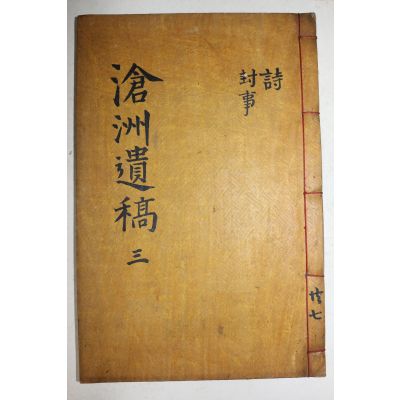 滄洲遺稿 三
詩
封事
共七